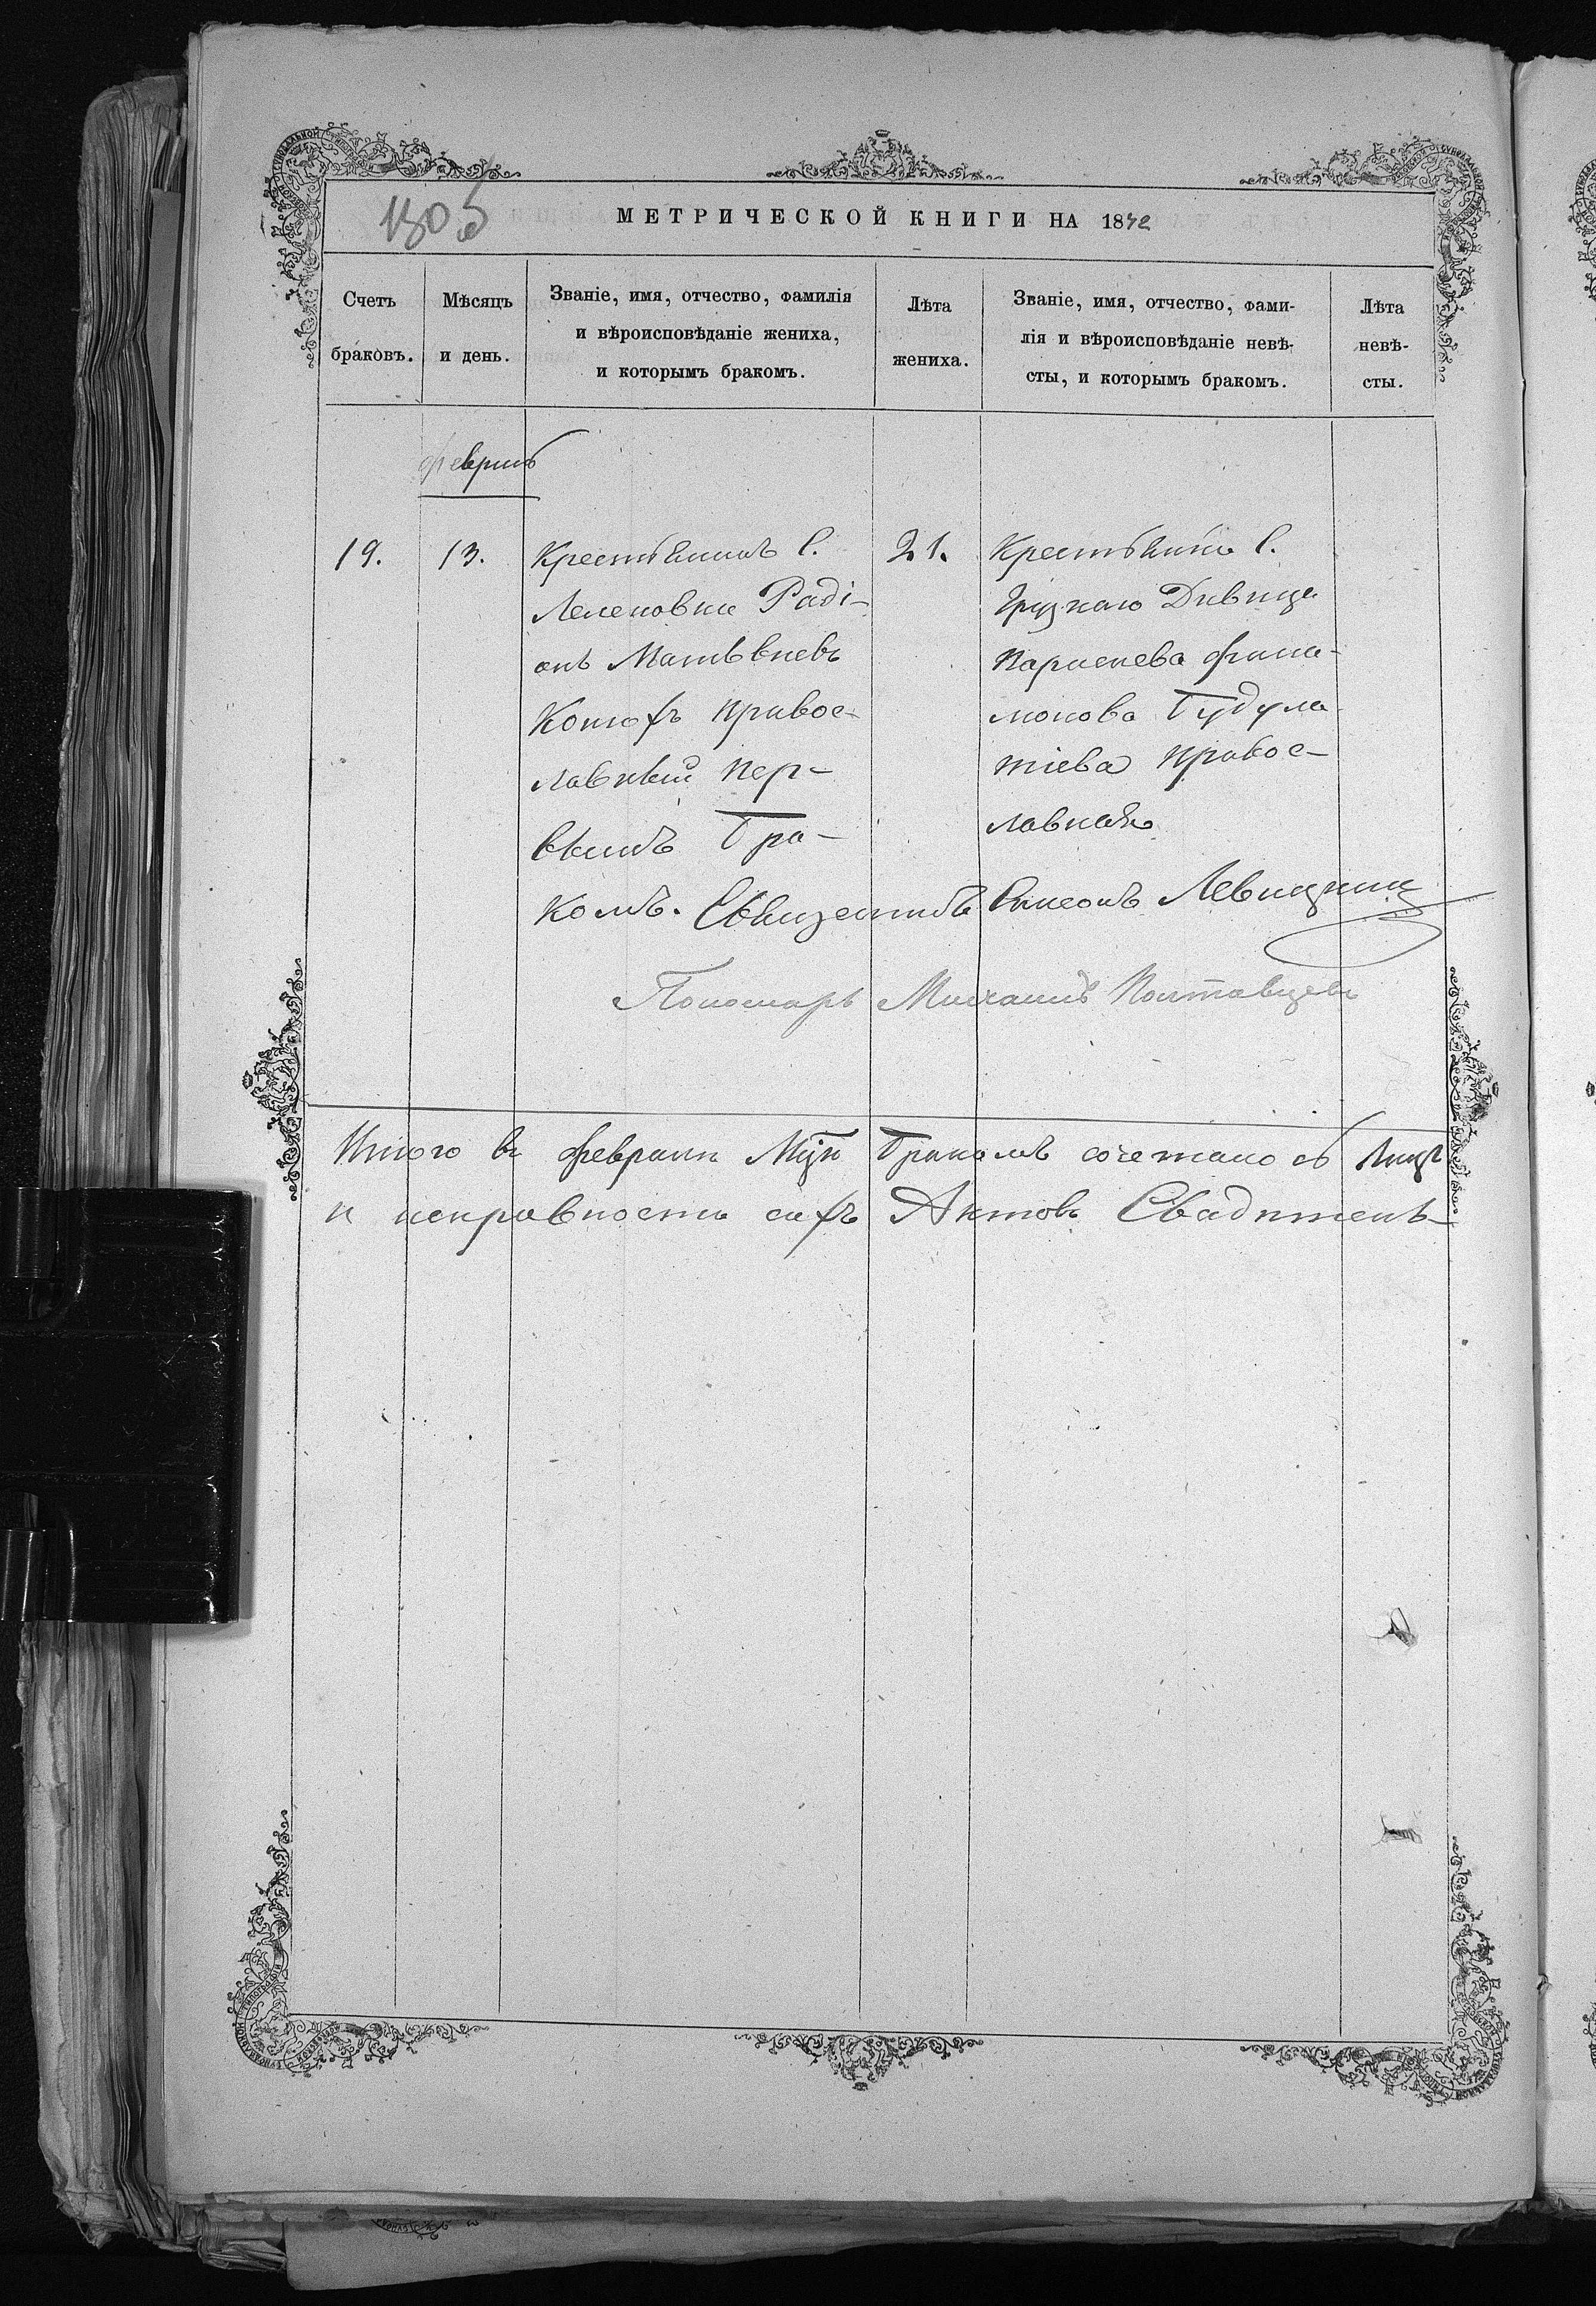 1305
МЕТРИЧЕСКОЙ КНИГИ НА 1872
Счетъ браковъ.
Мѣсяцъ и день.
Званіе, имя, отчество, фамилія
и вѣроисповѣданіе жениха,
и которымъ бракомъ.
Лѣта жениха.
Званіе, имя, отчество, фами-
лія и вѣроисповѣданіе невѣ-
сты, и которымъ бракомъ.
Лѣта
невѣ-
сты.
февраль
19.
13.
Крестьянинъ С.
Лелековки Раді-
онъ Матѣѣевъ
правос-
лавный пер-
вымъ бра-
комъ.
21.
Крестьянка С.
Грузкаго Дѣвица
Фила-
монова
правос-
лавная
Симеонъ Левицкій
Пономарь Михаилъ Полтавцевъ
Итого въ февралѣ Мцѣ бракомъ сочетано лицъ
и исправность сихъ Актовъ Свадѣтель-